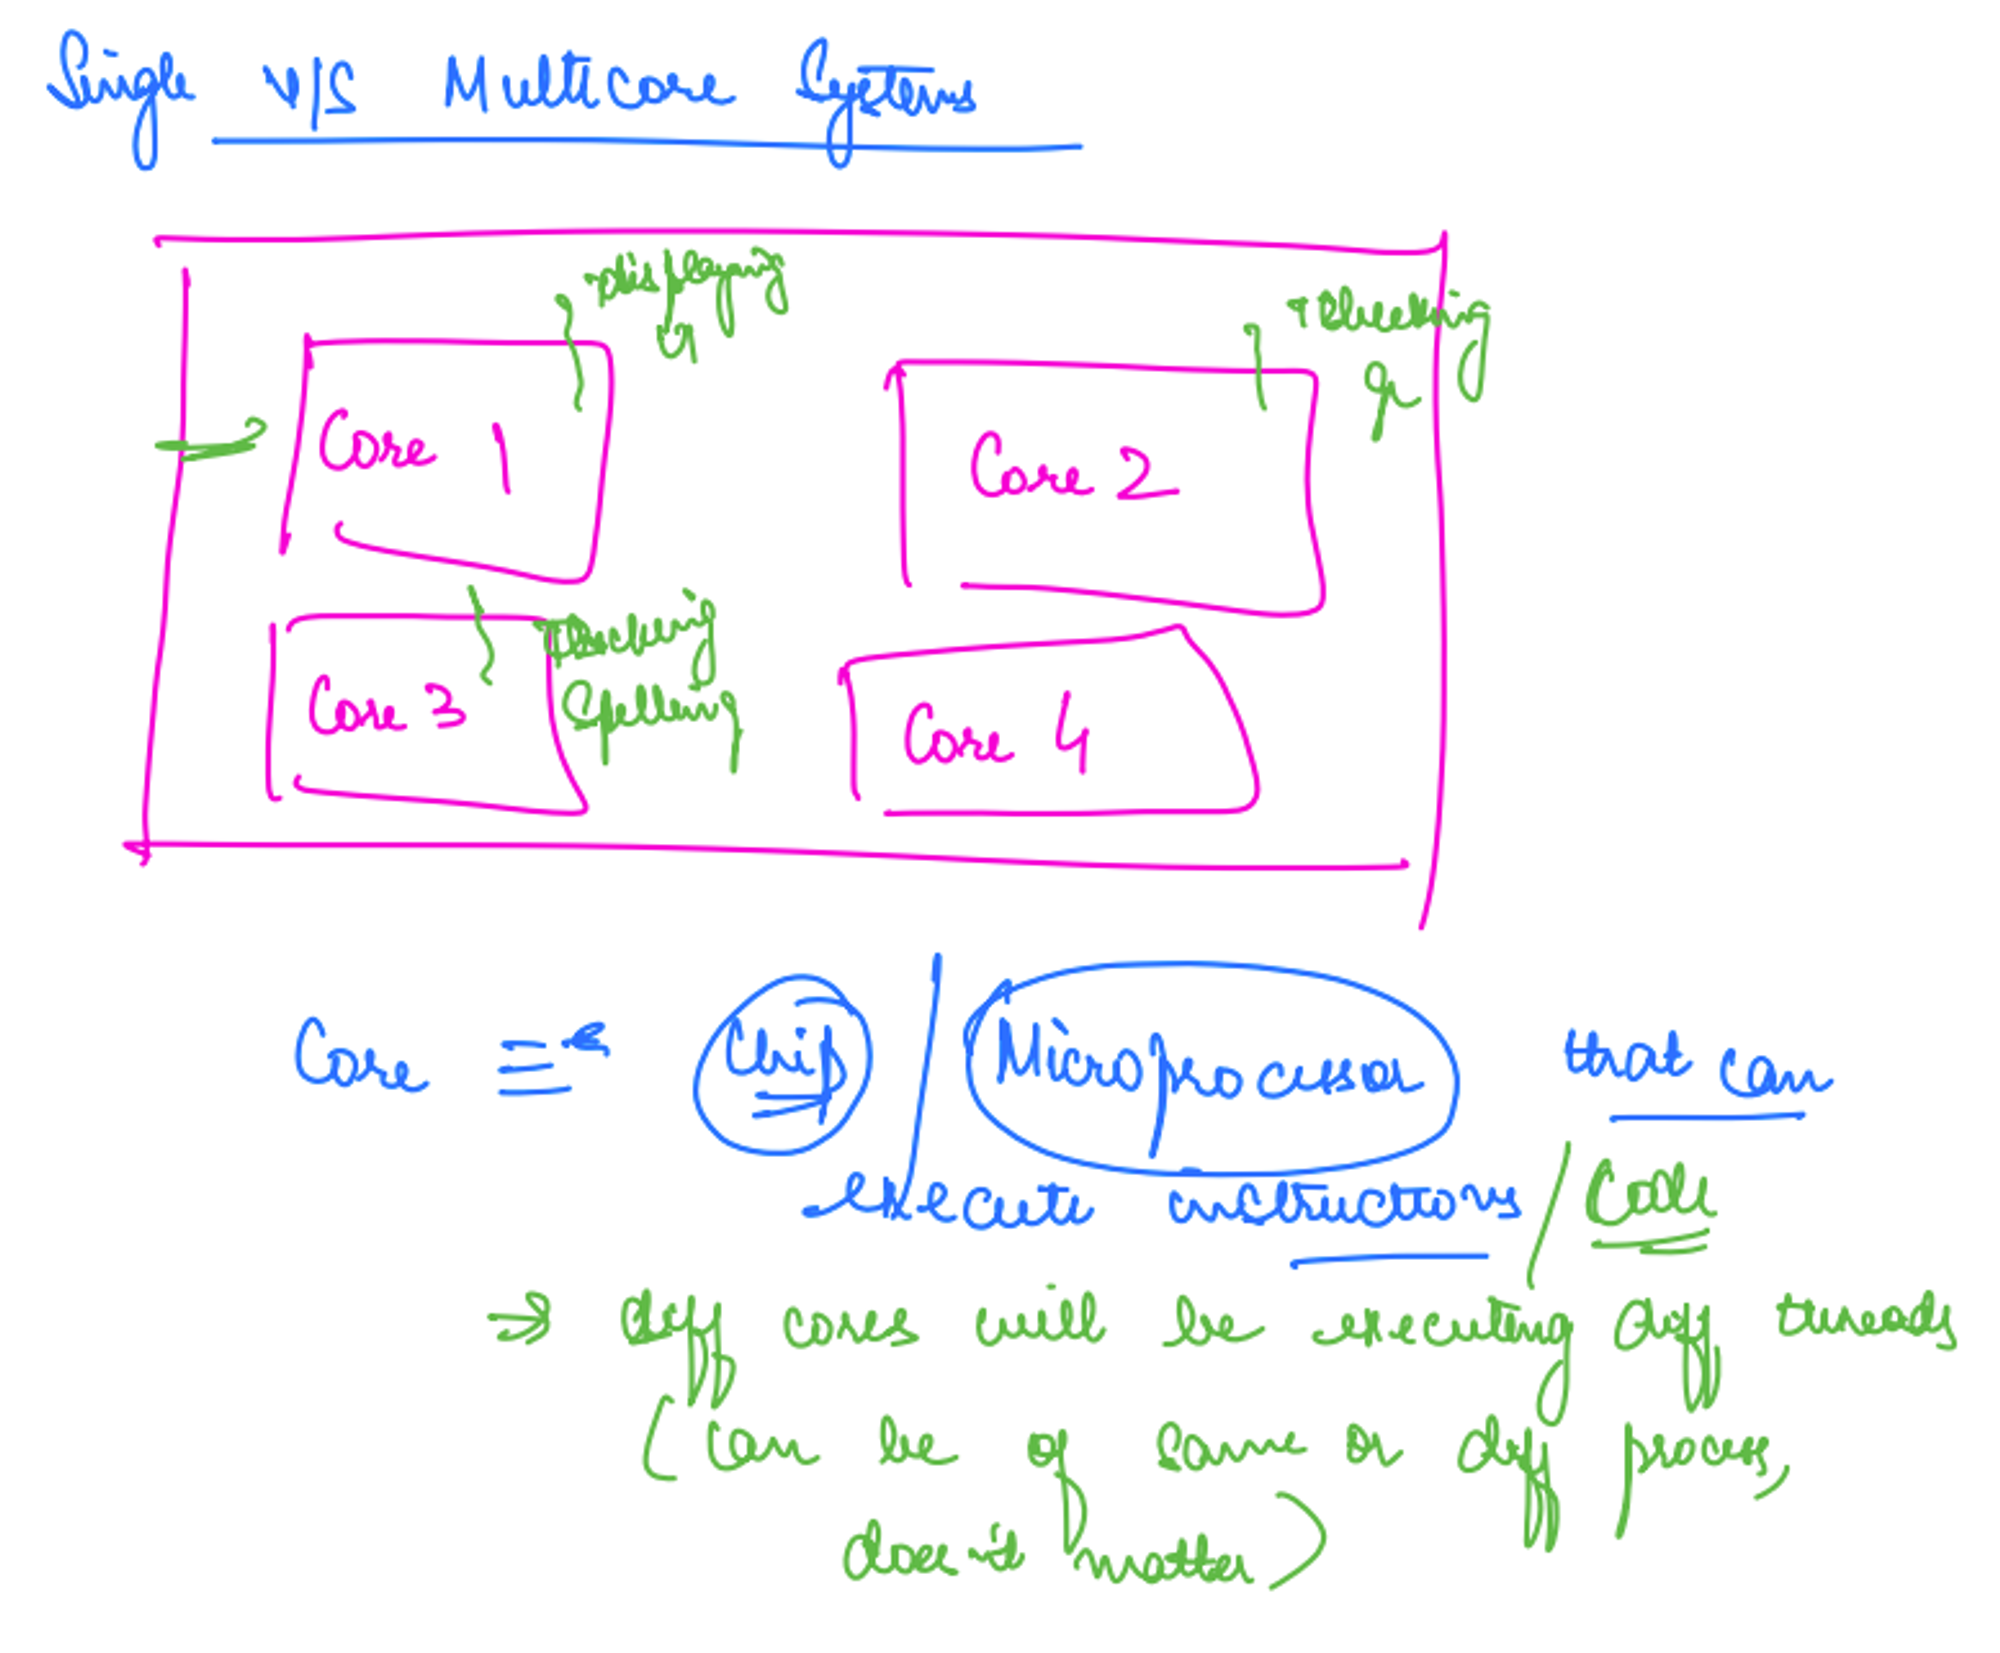 Single v/s Multicore Systems
displaying
UI
checking
gr
Core 1
Core 2
checking
Spelling
Core 3
Core 4
Core ≡ Chip / Microprocessor that can
execute instructions / Code
⇒ diff cores will be executing diff threads
(can be of same or diff process,
doesn't matter)